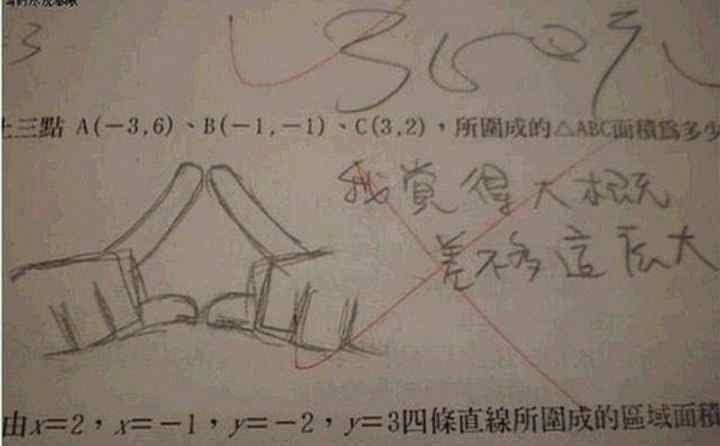 3 3600元
上三點 A(−3,6)、B(−1,−1)、C(3,2),所圍成的△ABC面積為多少
我覺得大概
差不多這麼大
由x=2,x=−1,y=−2,y=3四條直線所圍成的區域面積